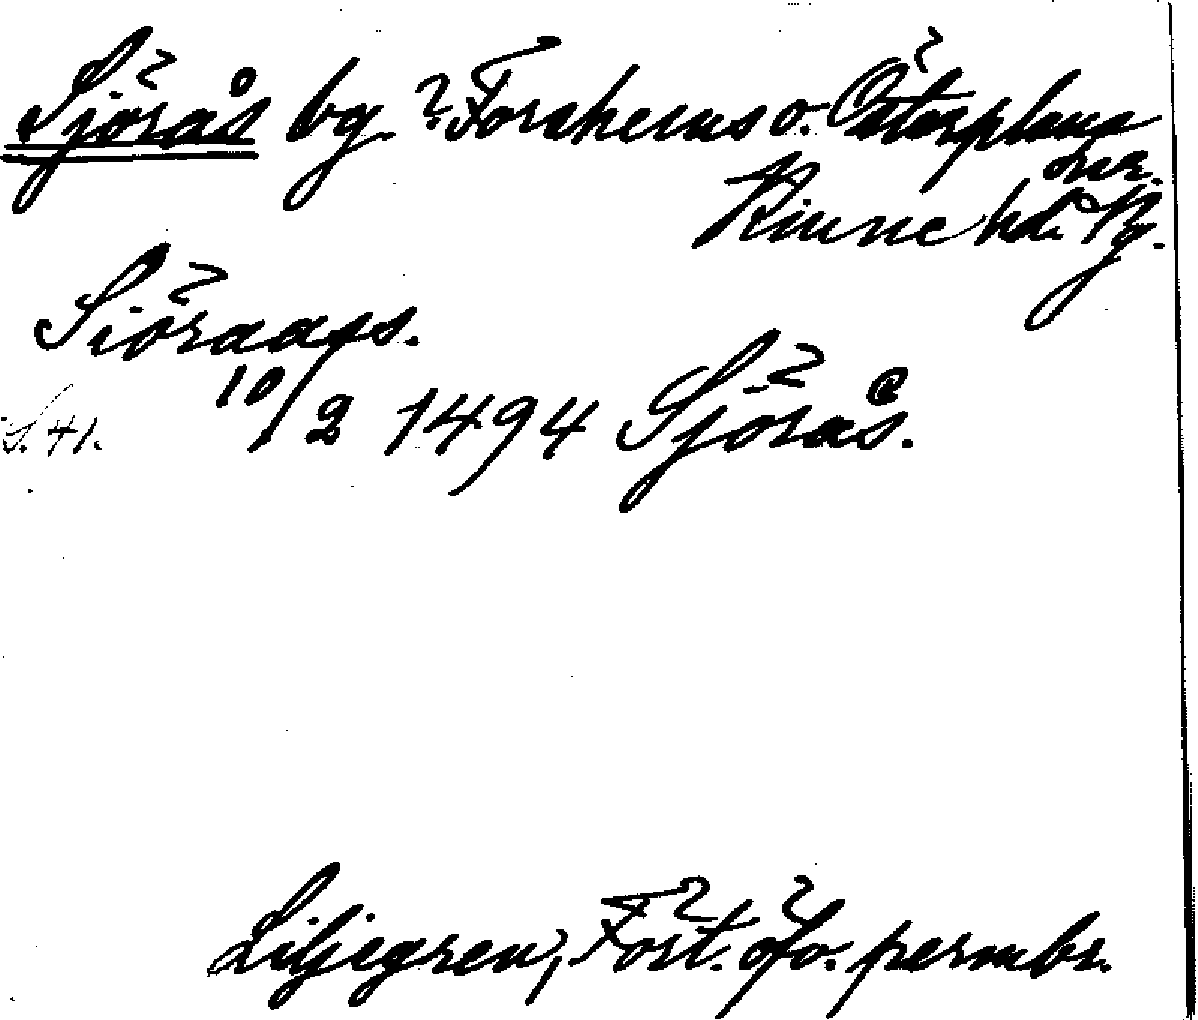 Sjörås by. ? Forshems o. Österplana
sna.
Kinne hd. Vg.
Siöraass.
S. 41. 10/2 1494 Sjörås.
Liljegren, Fört. öfv. permbr.